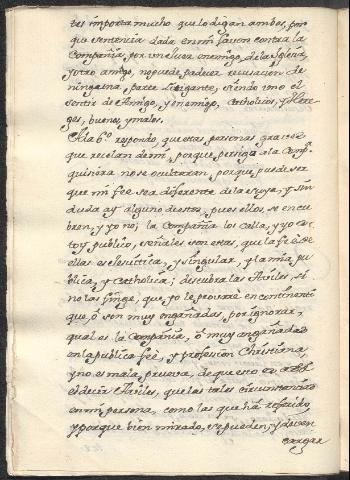 tas importa mucho que lo digan ambos, por
que sentencia dada en mi favor contra la
Compañia, por un el uno enemigo, de la Iglesia,
y otro amigo, no puede padecer recusacion de
ninguna parte Litigante, siendo uno el
sentir de Amigo, y enemigo, Catholicos, y Here
ges, buenos, y malos.
A la 6.º respondo, que otras personas graves
que recelan de mi, porque persigo a la Comp.ª
quisiera no se ocultaran, porque puede ser
que mi fee sea diferente de la suya, y sin
duda ay alguno de estos, pues ellos se encu
bren, y yo no; la Compañia los cela, y yo es
toy publico, señales son estas, que la fee de
ellas es eclesiastica, y singular, y la mia pu
blica, y Catholica; descubra las Aviles, si
no las finge, que yo le provare en continenti
que, ò son muy engañadas, por ignorar,
qual es la Compañia, ò muy engañadas
en la publica fee, y profesion Christiana,
y no es mala prueva, de que esto es assi
el decir Aviles, que las tales circunstancias
en mi persona, como las que há referido,
y porque bien mirado, se pueden, y deven
cargar